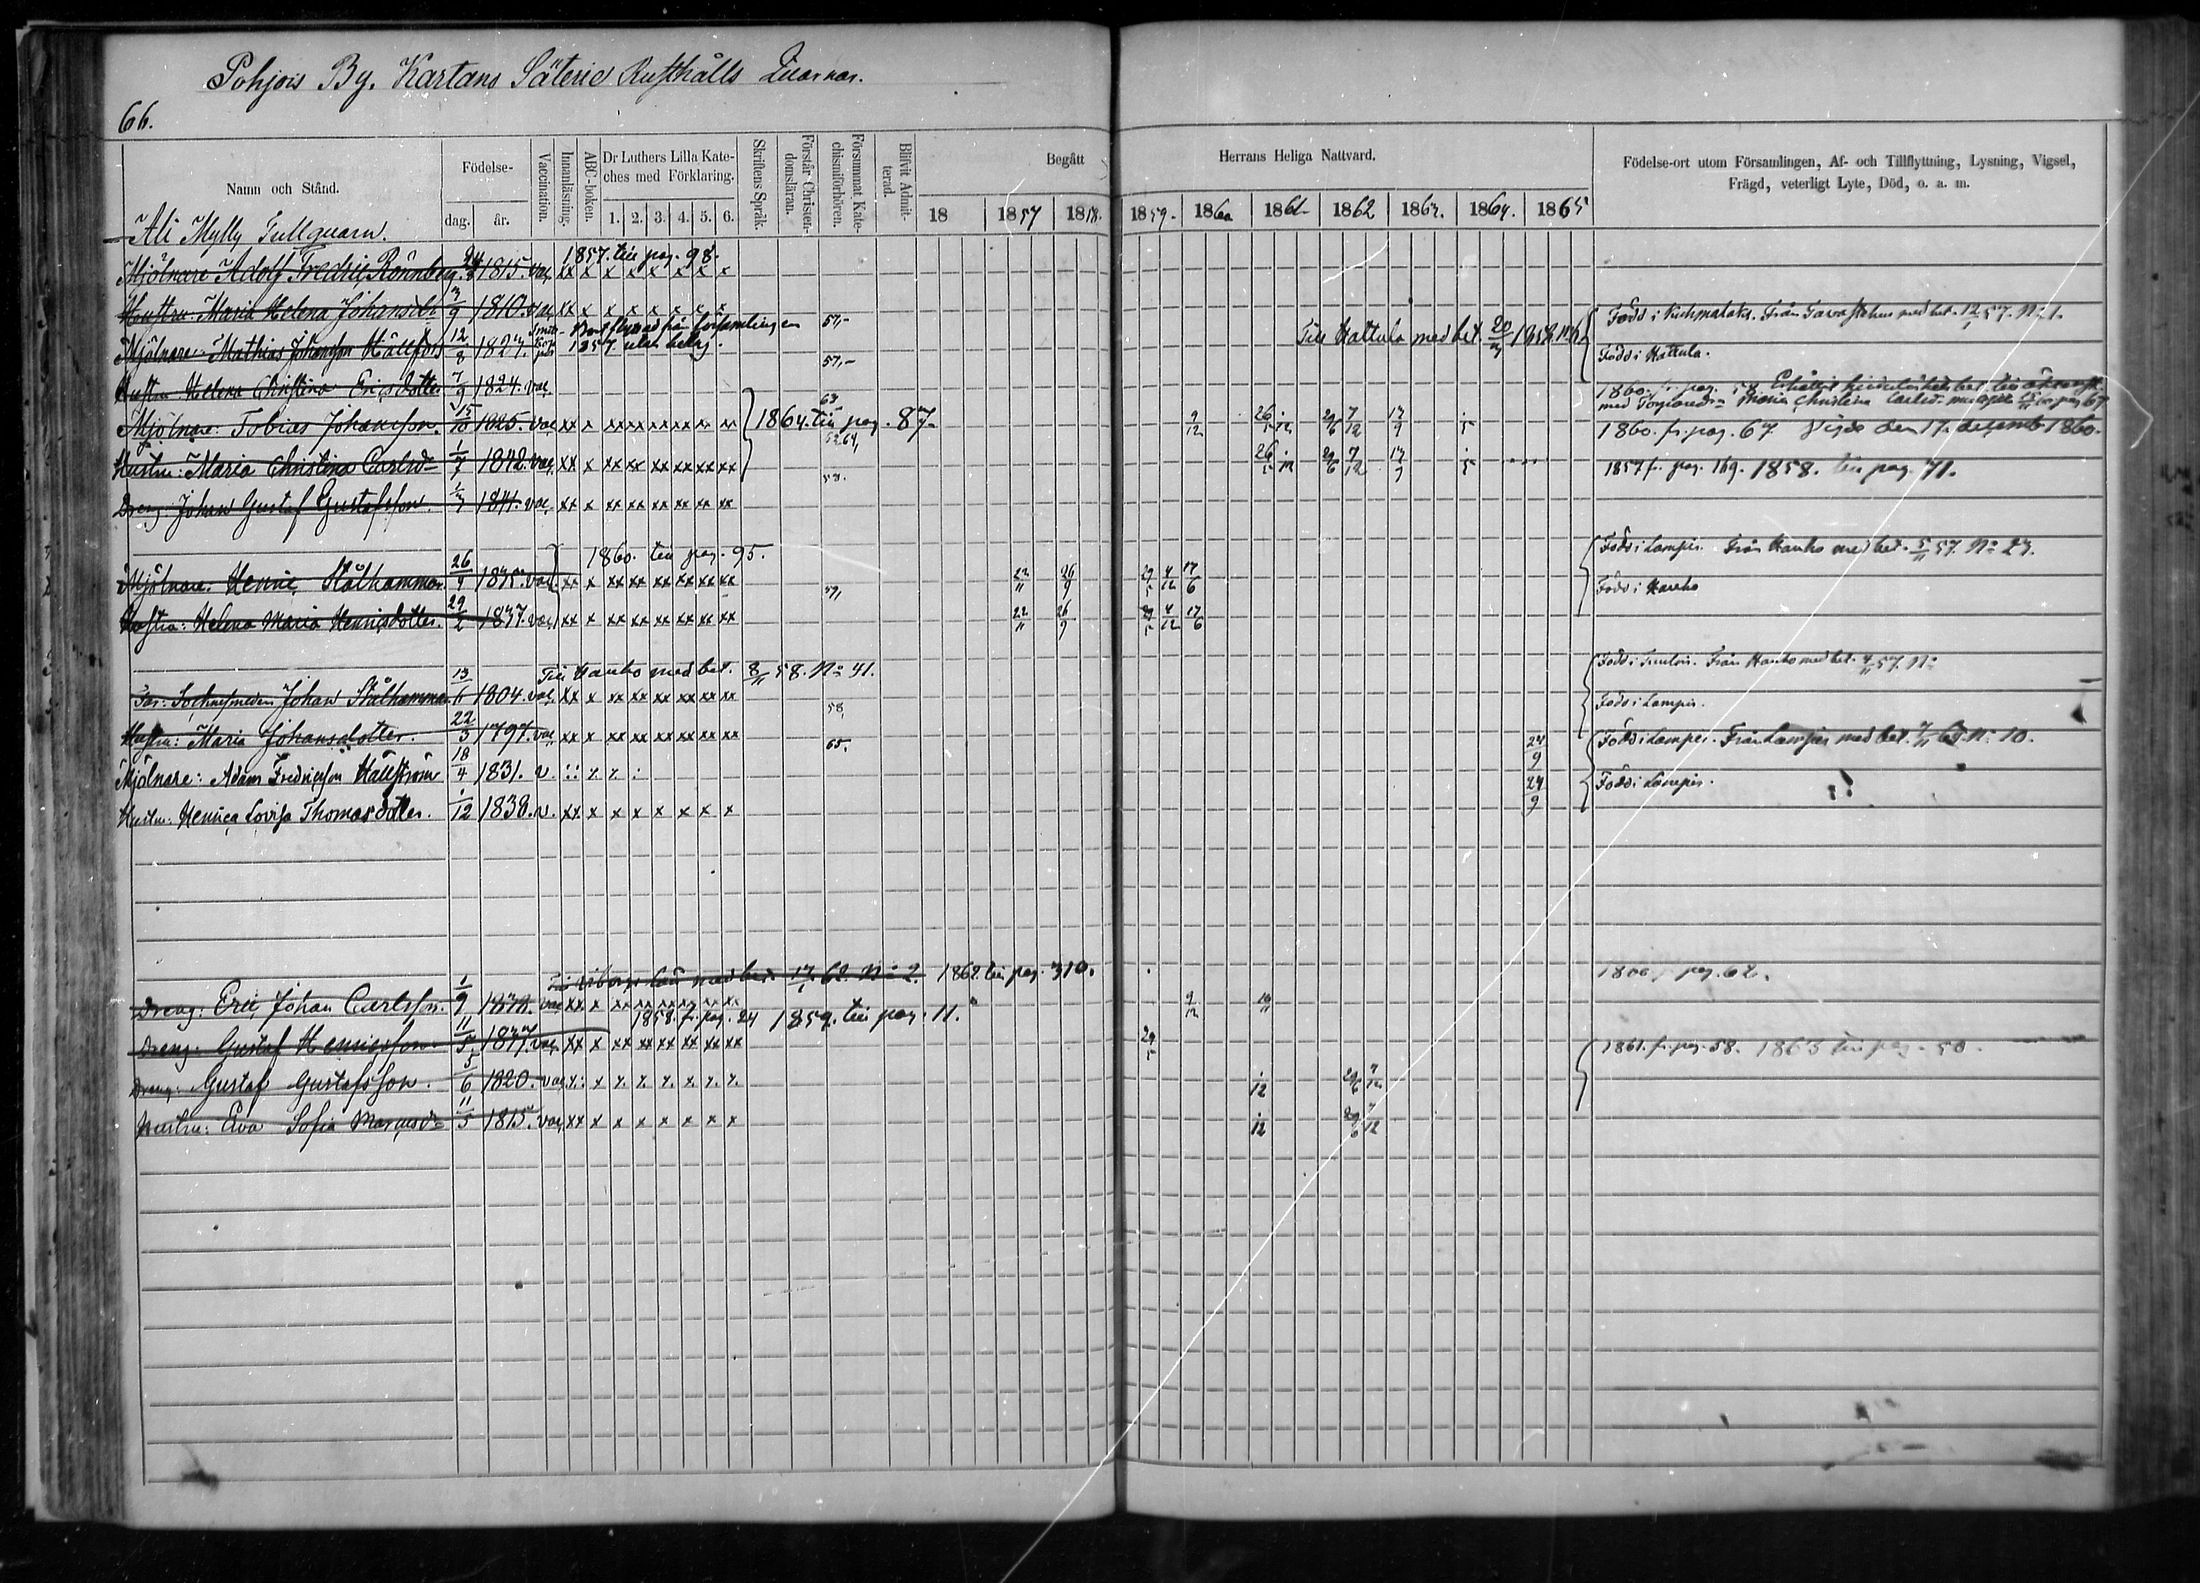 Pohjois By. Kartano Säterie Rusthålls Quarnar.
66.
Namn och Stånd.
Födelse-
dag. år.
Vaccination.
Innanläsning.
ABC-boken.
Dr Luthers Lilla Kate-
ches med Förklaring.
1. 2. 3. 4. 5. 6.
Skriftens Språk.
Förstår Christen-
domsläran.
Försummat Kate-
chismiförhören.
Blifvit Admit-
terad.
Begått Herrans Heliga Nattvard.
18 1857 1858. 1859. 1860 1861. 1862 1863. 1864. 1865
Födelse-ort utom Församlingen, Af- och Tillflyttning, Lysning, Vigsel,
Frägd, veterligt Lyte, Död, o. a. m.
Ali Mylly Tullquarn.
1857. till pag. 98.
Mjölnare Adolf Fredric Rönnberg. 1815. vac. xx x x x x x x x
Hustru: Maria Helena Johansdr 1810. vac. xx x x x x x x x
Född i Kuhmalaks. Från Tavastehus med bet. 12/1 57. No 1.
Bortflyttad från församlingen 57,-
Till Hattula med bet. 20/3 1858
Mjölnare: Mathias Johansson Hällfors 12/8 1827. 1857 utan betyg.
Född i Hattula.
57,-
Hustru Helena Christina Ericsdotter 7/9 1824. vac.
1860. fr. pag. 58
med Maria Christina Carlsd:
Mjölnare: Tobias Johansson. 15/10 1825. vac xx x xx xx xx xx xx xx 1864. till pag. 87. 9/12 26/5 29/6 7/12 17/9
1860. fr. pag. 67. Vigde den 17. decemb. 1860.
Hustru: Maria Christina Carlsd= 1/7 1842. vac. xx x xx xx xx xx xx xx 26/5 29/6 7/12 17/9
1857. fr. pag. 169. 1858. till pag. 71.
58.
Dreng: Johan Gustaf Gustafsson. 1841. vac. xx x xx xx xx xx xx xx
1860. till pag. 95.
Född i Lampis. Från Hauho med bet. 5/11 57. No 23.
Mjölnare. Henric Stålhammar. 26/9 1835. vac. xx x xx xx xx xx xx xx 22/11 26/9 29/5 4/12 17/6
Född i Hauho
59,
Hustru: Helena Maria Henricsdotter. 29/2 1837. vac. xx x xx xx xx xx xx xx 22/11 26/9 29/5 4/12 17/6
Till Hauho med bet. 8/11 58. No 41.
Född i Tuulois. Från Hauho med bet. 57. No
Far: Johan Stålhammar 13/6 1804. vac. xx x xx xx xx xx xx xx
Född i Lampis.
58,
Hustru: Maria Johansdotter. 22/3 1797. vac xx x xx xx xx xx xx xx
65.
Född i Lampis. Från Lampis med bet. No 10.
Mjölnare: Adam Fredricsson Hällström 18/4 1831. v. 24/9
Född i Lampis.
Hustru: Henrica Lovisa Thomasdotter. 1/12 1838. v. xx x x x x x x x 24/9
med bet. 17/1 62. No 2. 1862. till pag. 310.
pag. 62.
Dreng: Eric Johan Carlsson. 1/9 vac xx x xx xx xx xx xx xx 9/12
1858. fr. pag. 24 1859. till pag. 11.
Dreng: Gustaf Henricsson 11/5 1837. vac. xx x xx xx xx xx xx xx 29/5
1861. fr. pag. 58. 1863 till pag. 50.
Dreng: Gustaf Gustafsson. 5/6 1820. vac 29/6 7/12
Hustru: Eva Sofia Marcusd= 11/5 1815. vac xx x x x x x x x 29/6 7/12